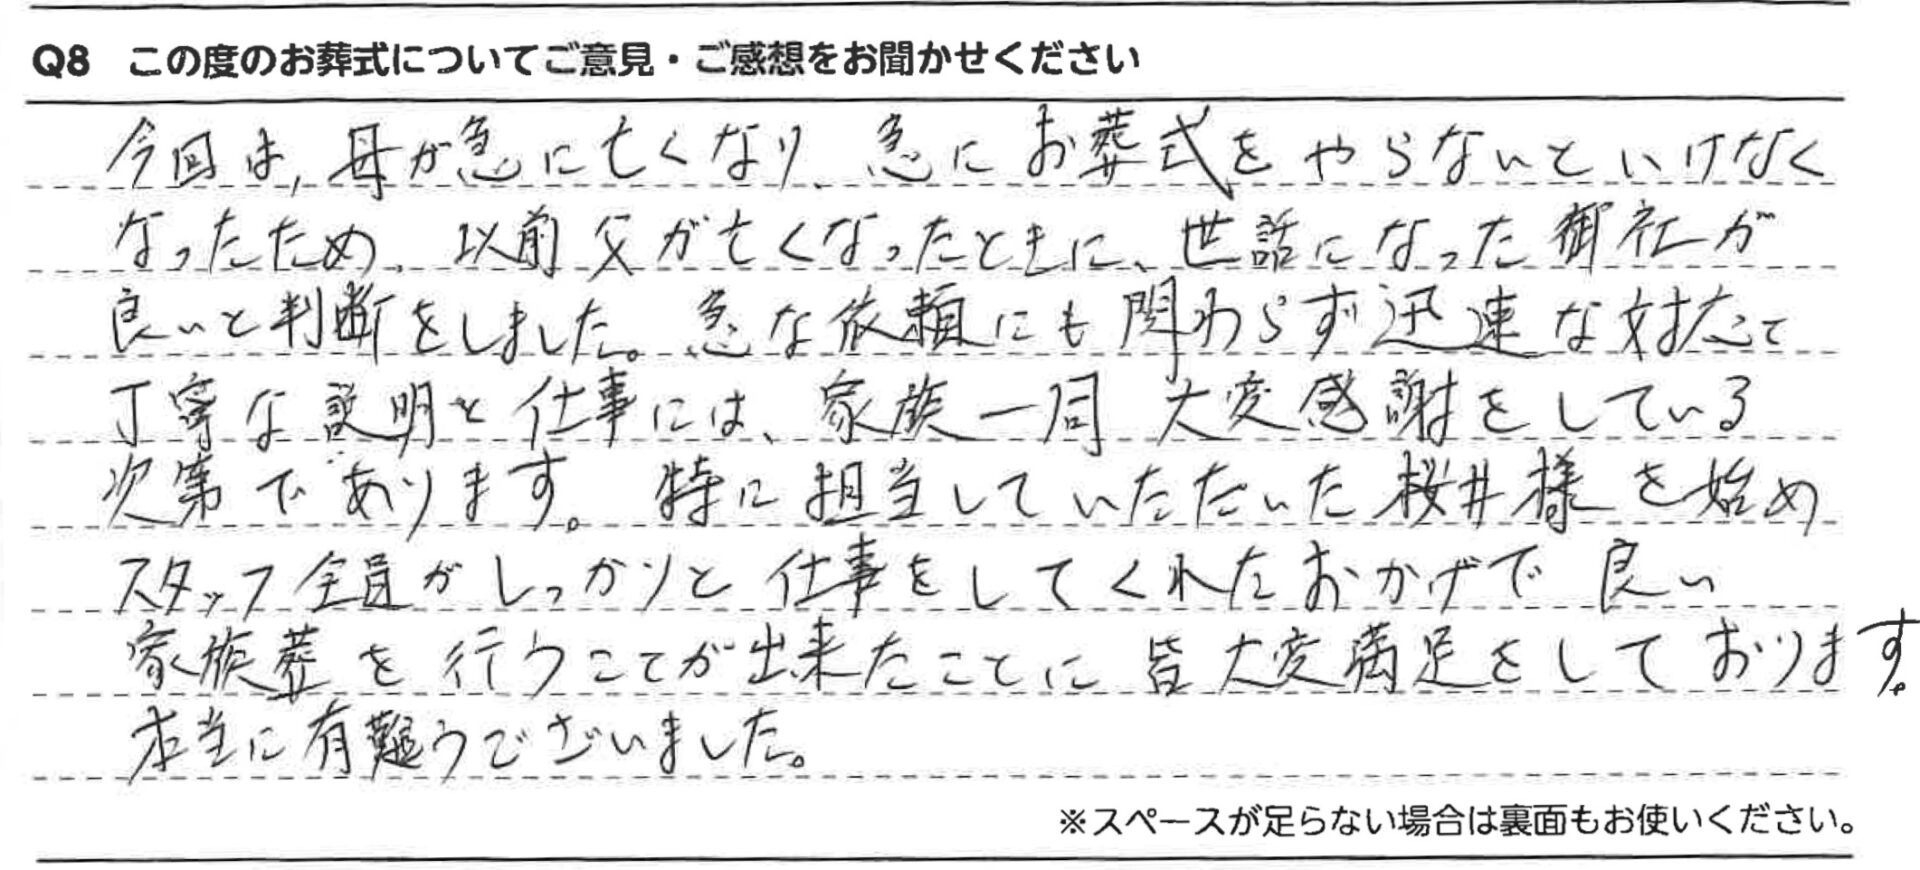 Q8 この度のお葬式についてご意見・ご感想をお聞かせください
今回は、母が急に亡くなり、急にお葬式をやらないといけなく
なったため、以前父が亡くなったときに、世話になった御社が
良いと判断をしました。急な依頼にも関わらず迅速な対応と
丁寧な説明と仕事には、家族一同 大変感謝をしている
次第であります。特に担当していただいた桜井様を始め
スタッフ全員がしっかりと仕事をしてくれたおかげで良い
家族葬を行うことが出来たことに皆大変満足をしております。
本当に有難うございました。
※スペースが足らない場合は裏面もお使いください。